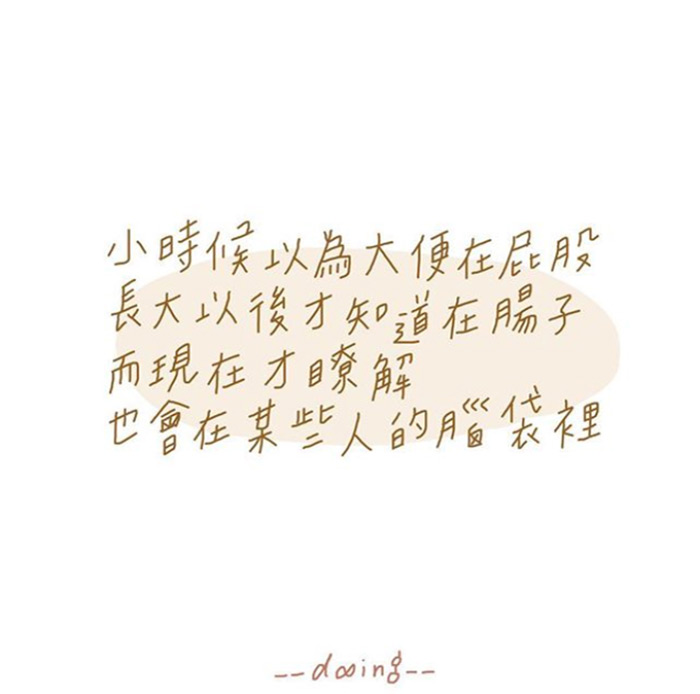 小時候以為大便在屁股
長大以後才知道在腸子
而現在才瞭解
也會在某些人的腦袋裡
--dooing--